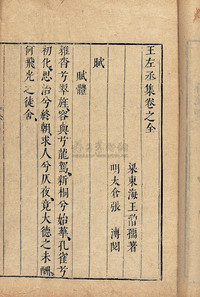 王左丞集卷之全
梁東海王僧孺著
明太倉張溥閱
賦
賦體
雅容兮翠旌容與兮龍駕新桐兮始華孔雀兮
初化思治兮終朝求人兮仄夜竟大德之未酬
何飛光之徒舍